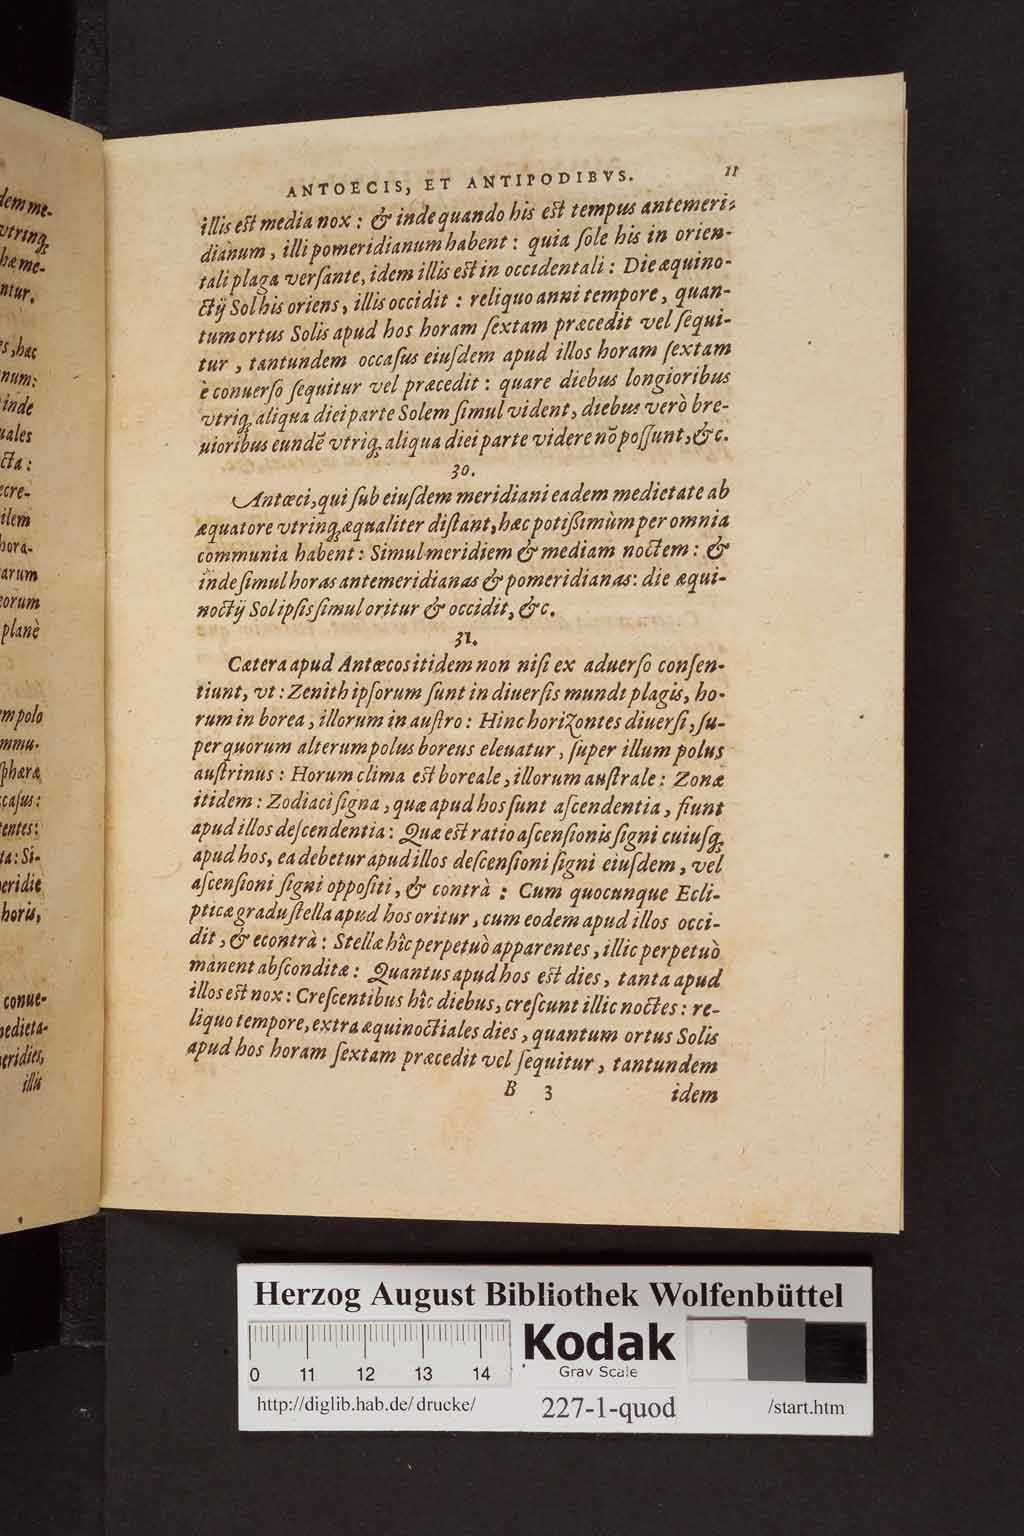 dem me-
vtrinq;
hæ me-
ntur.
s, hæc
num:
inde
uales
cta:
ecre-
ilem
hora-
arum
eorum
planè
m polo
mmu-
sphæræ
casus:
tentes:
ta: Si-
eridie
horis,
conue-
nedieta-
eridies,
illis
ANTOECIS, ET ANTIPODIBVS. 11
illis est media nox: & inde quando his est tempus antemeri-
dianum, illi pomeridianum habent: quia sole his in orien-
tali plaga versante, idem illis est in occidentali: Die æquino-
ctij Sol his oriens, illis occidit: reliquo anni tempore, quan-
tum ortus Solis apud hos horam sextam præcedit vel sequi-
tur, tantundem occasus eiusdem apud illos horam sextam
è conuerso sequitur vel præcedit: quare diebus longioribus
vtriq; aliqua diei parte Solem simul vident, diebus verò bre-
uioribus eundē vtriq; aliqua diei parte videre nō possunt, &c.
30.
Antœci, qui sub eiusdem meridiani eadem medietate ab
æquatore vtrinq; æqualiter distant, hæc potißimùm per omnia
communia habent: Simul meridiem & mediam noctem: &
inde simul horas antemeridianas & pomeridianas: die æqui-
noctij Sol ipsis simul oritur & occidit, &c.
31.
Cætera apud Antœcos itidem non nisi ex aduerso consen-
tiunt, vt: Zenith ipsorum sunt in diuersis mundi plagis, ho-
rum in borea, illorum in austro: Hinc horizontes diuersi, su-
per quorum alterum polus boreus eleuatur, super illum polus
austrinus: Horum clima est boreale, illorum australe: Zonæ
itidem: Zodiaci signa, quæ apud hos sunt ascendentia, fiunt
apud illos descendentia: Quæ est ratio ascensionis signi cuiusq;
apud hos, ea debetur apud illos descensioni signi eiusdem, vel
ascensioni signi oppositi, & contrà: Cum quocunque Ecli-
pticæ gradu stella apud hos oritur, cum eodem apud illos occi-
dit, & econtrà: Stellæ hîc perpetuò apparentes, illic perpetuò
manent absconditæ: Quantus apud hos est dies, tanta apud
illos est nox: Crescentibus hîc diebus, crescunt illic noctes: re-
liquo tempore, extra æquinoctiales dies, quantum ortus Solis
apud hos horam sextam præcedit vel sequitur, tantundem
B 3 idem
Herzog August Bibliothek Wolfenbüttel
Kodak
Gray Scale
0 11 12 13 14
http://diglib.hab.de/drucke/ 227-1-quod /start.htm